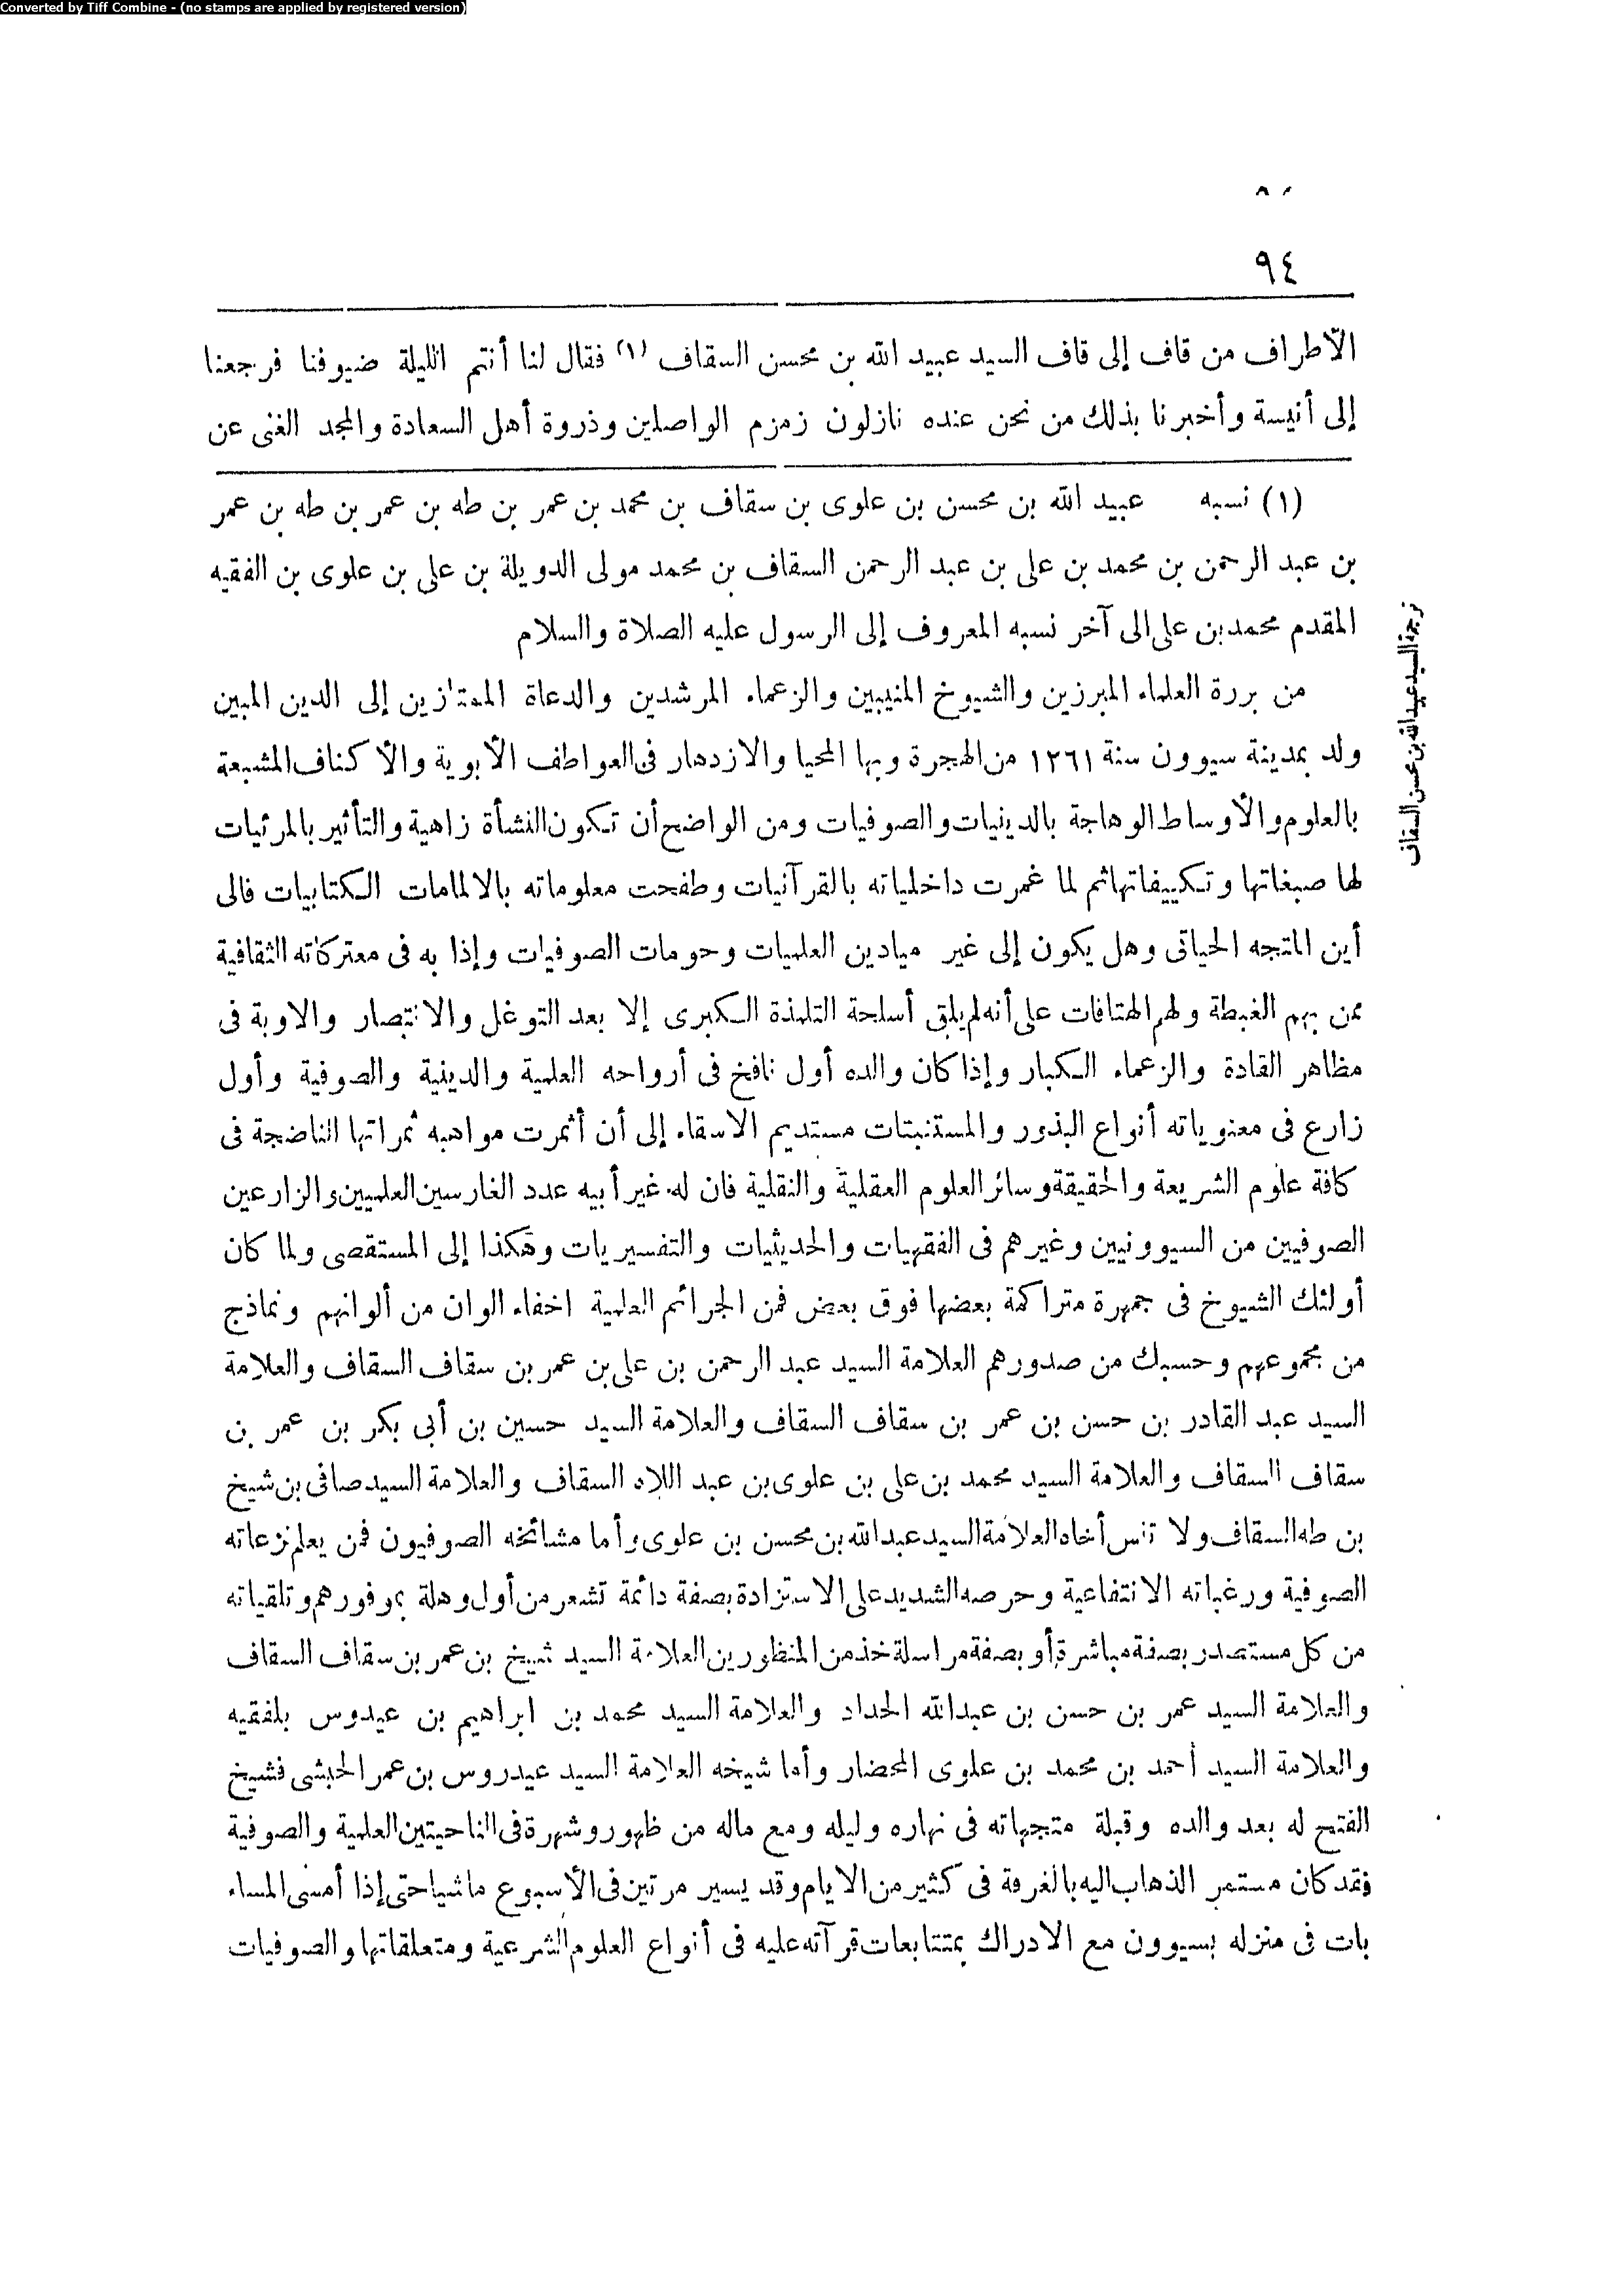 Converted by Tiff Combine - (no stamps are applied by registered version)
٩٤
الأطراف من قاف إلى قاف السيد عبيد الله بن محسن السقاف (١) فقال لنا أنتم الليلة ضيوفنا فرجعنا
إلى أنيسة وأخبرنا بذلك من نحن عنده نازلون زمزم الواصلين وذروة أهل السعادة والمجد الغنى عن
(١) نسبه عبيد الله بن محسن بن علوى بن سقاف بن محمد بن عمر بن طه بن عمر بن طه بن عمر
بن عبد الرحمن بن محمد بن على بن عبد الرحمن السقاف بن محمد مولى الدويلة بن على بن علوى بن الفقيه
المقدم محمد بن على الى آخر نسبه المعروف إلى الرسول عليه الصلاة والسلام
ترجمة السيد عبيد الله بن محسن السقاف
من بررة العلماء المبرزين والشيوخ المنيبين والزعماء المرشدين والدعاة الممتازين إلى الدين المبين
ولد بمدينة سيوون سنة ١٢٦١ من الهجرة وبها المحيا والازدهار فى العواطف الأبوية والأكناف المشبعة
بالعلوم والأوساط الوهاجة بالدينيات والصوفيات ومن الواضح أن تكون النشأة زاهية والتأثير بالمرئيات
لها صبغاتها وتكييفاتها ثم لما غمرت داخلياته بالقرآنيات وطفحت معلوماته بالالمامات الكتابيات فالى
أين المتجه الحياتى وهل يكون إلى غير ميادين العلميات وحومات الصوفيات وإذا به فى معتركاته الثقافية
ممن بهم الغبطة ولهم الهتافات على أنه لم يلق أسلحة التلمذة الكبرى إلا بعد التوغل والانتصار والاوبة فى
مظاهر القادة والزعماء الكبار وإذا كان والده أول نافخ فى أرواحه العلمية والدينية والصوفية وأول
زارع فى معنوياته أنواع البذور والمستنبتات مستديم الاسقاء إلى أن أثمرت مواهبه ثمراتها الناضجة فى
كافة علوم الشريعة والحقيقة وسائر العلوم العقلية والنقلية فان له غير أبيه عدد الغارسين العلميين والزارعين
الصوفيين من السيوونيين وغيرهم فى الفقهيات والحديثيات والتفسيريات وهكذا إلى المستقصى ولما كان
أولئك الشيوخ فى جمهرة متراكمة بعضها فوق بعض فمن الجرائم العلمية اخفاء الوان من ألوانهم ونماذج
من مجموعهم وحسبك من صدورهم العلامة السيد عبد الرحمن بن على بن عمر بن سقاف السقاف والعلامة
السيد عبد القادر بن حسن بن عمر بن سقاف السقاف والعلامة السيد حسين بن أبى بكر بن عمر بن
سقاف السقاف والعلامة السيد محمد بن على بن علوى بن عبد اللاه السقاف والعلامة السيد صافى بن شيخ
بن طه السقاف ولا تنس أخاه العلامة السيد عبد الله بن محسن بن علوى وأما مشائخه الصوفيون فمن يعلم نزعاته
الصوفية ورغباته الانتفاعية وحرصه الشديد على الاستزادة بصفة دائمة تشعر من أول وهلة بموفورهم وتلقياته
من كل مستصدر بصفة مباشرة أو بصفة مراسلة خذ من المنظورين العلامة السيد شيخ بن عمر بن سقاف السقاف
والعلامة السيد عمر بن حسن بن عبدالله الحداد والعلامة السيد محمد بن ابراهيم بن عيدوس بلفقيه
والعلامة السيد أحمد بن محمد بن علوى المحضار وأما شيخه العلامة السيد عيدروس بن عمر الحبشى فشيخ
الفتح له بعد والده وقبلة متجهاته فى نهاره وليله ومع ماله من ظهور وشهرة فى الناحيتين العلمية والصوفية
فقد كان مستمر الذهاب اليه بالغرفة فى كثير من الايام وقد يسير مرتين فى الأسبوع ماشيا حتى إذا أمسى المساء
بات فى منزله بسيوون مع الادراك بمتتابعات قرآته عليه فى أنواع العلوم الشرعية ومتعلقاتها والصوفيات